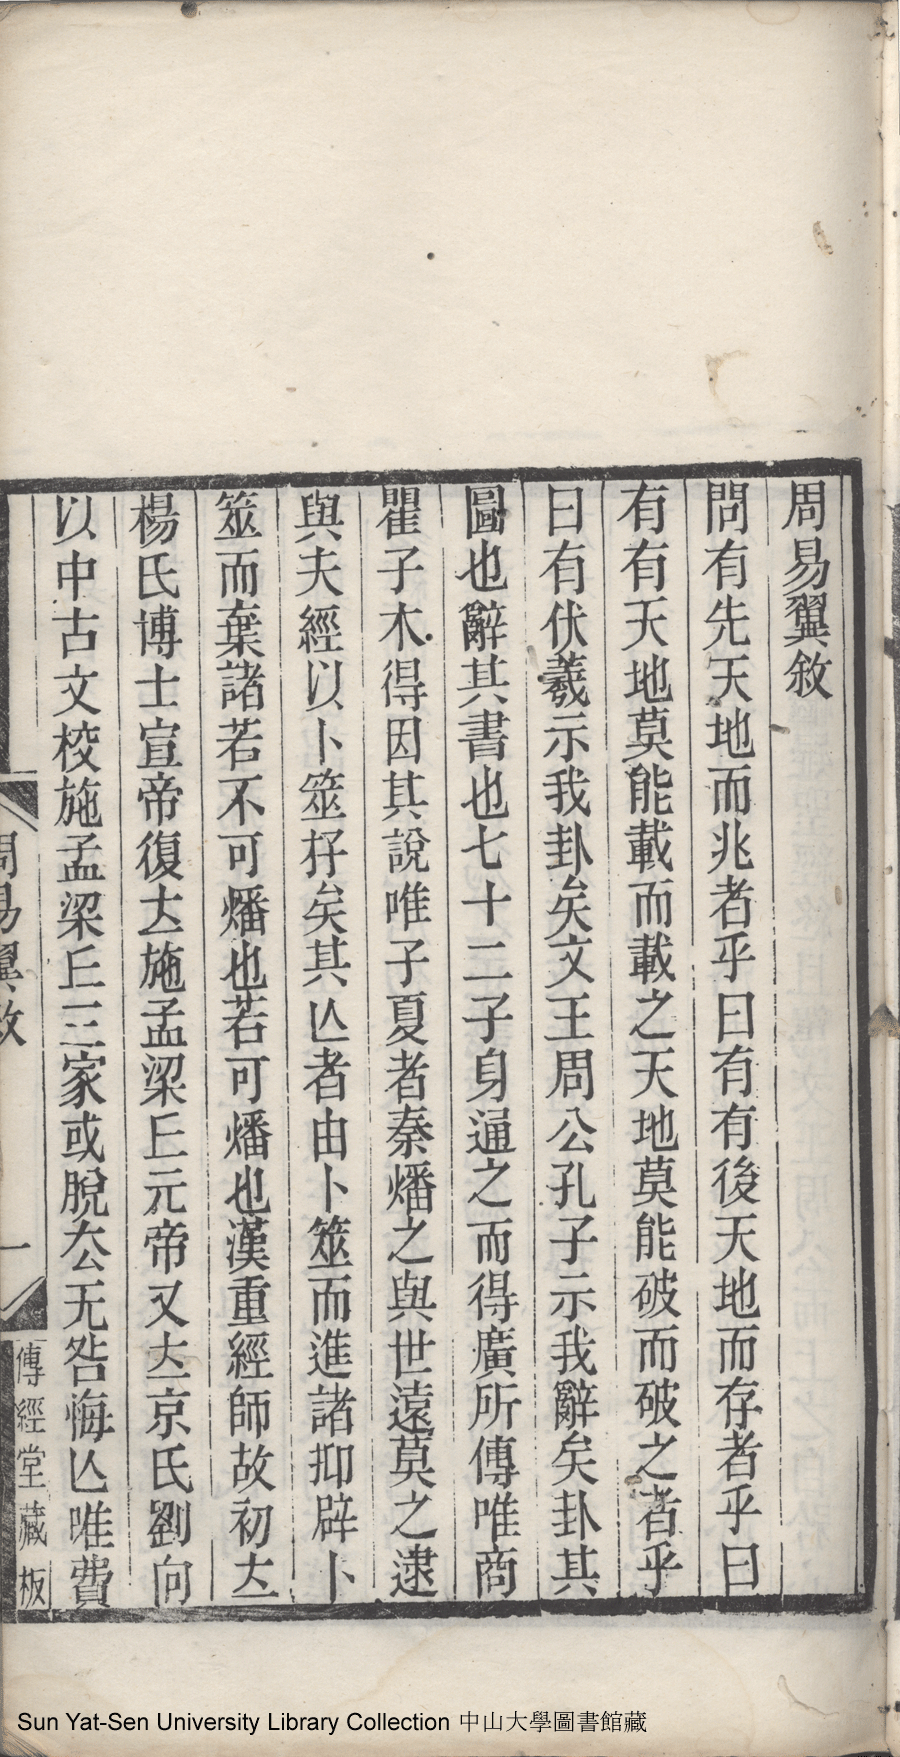 周易翼敘
問有先天地而兆者乎曰有有後天地而存者乎曰
有有天地莫能載而載之天地莫能破而破之者乎
曰有伏羲示我卦矣文王周公孔子示我辭矣卦其
圖也辭其書也七十二子身通之而得廣所傳唯商
瞿子木得因其說唯子夏者秦燔之與世遠莫之逮
與夫經以卜筮存矣其亾者由卜筮而進諸抑辟卜
筮而棄諸若不可燔也若可燔也漢重經師故初立
楊氏博士宣帝復立施孟梁丘元帝又立京氏劉向
以中古文校施孟梁丘三家或脫去无咎悔亾唯費
周易翼敘
一
傳經堂藏板
Sun Yat-Sen University Library Collection 中山大學圖書館藏